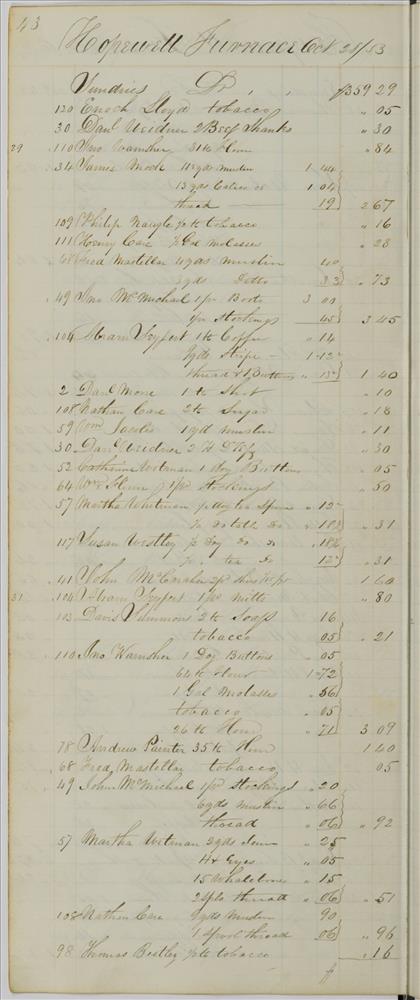 43
Hopewell Furnace Oct 28/53
Sundries Dr , , $359 29
120 Enoch Lloyd tobacco " 05
30 Danl Weidner 2 Beef Shanks " 30
29 110 Jno Wamsher 31 lb Flour " 84
34 James Mock 11 yds muslin 1 44
13 yds Calico 1 04
thread 19 2 67
109 Philip Naugle ½ lb tobacco " 16
111 Henry Care ½ Gal molasses " 28
68 Fred Mastellar 4 yds muslin 40
3 yds Ditto 33 " 73
49 Jno McMichael 1 pr Boots 3 00
1 pr Stockings 45 3 45
104 Hiram Seyfert 1 lb Coffee " 14
9 yds Stripe 1.12
thread & Buttons " 1 40
2 Danl Morre 1 lb Shot " 10
108 Nathan Care 2 lb Sugar " 18
59 Wm Jacobs 1 yd muslin " 11
30 Danl Weidner " 30
52 Catharine Wotman 1 doz Buttons " 05
64 Wm 1 pr Stockings " 50
57 Martha Wotman ½ doz tea Spoons " 12
½ Do table Do " 18¾ " 31
117 Susan Westley ½ Doz Do Do 18¾
½ " tea Do 12 " 31
41 John 2 pr 1 60
31 104 Hiram Seyfert 1 pr mitts " 80
103 Davis Simmons 2 lb Soap 16
tobacco 05 " 21
110 Jno Wamsher 1 Doz Buttons " 05
64 lb Flour 1.72
1 Gal Molasses " 56
tobacco " 05
26 lb Flour " 71 3 09
78 Andrew Painter 35 lb Flour 1 40
68 Fred Mastellar tobacco 05
49 John McMichael 1 pr Stockings " 20
6 yds muslin " 66
thread " 06 " 92
57 Martha Wotman 2 yds " 25
H & Eyes " 05
15 Whalebones " 15
2 Spls thread " 06 " 51
108 Nathan Care 9 yds Muslin 90
1 Spool thread 06 " 96
98 Thomas Bestley ½ lb tobacco " 16
$